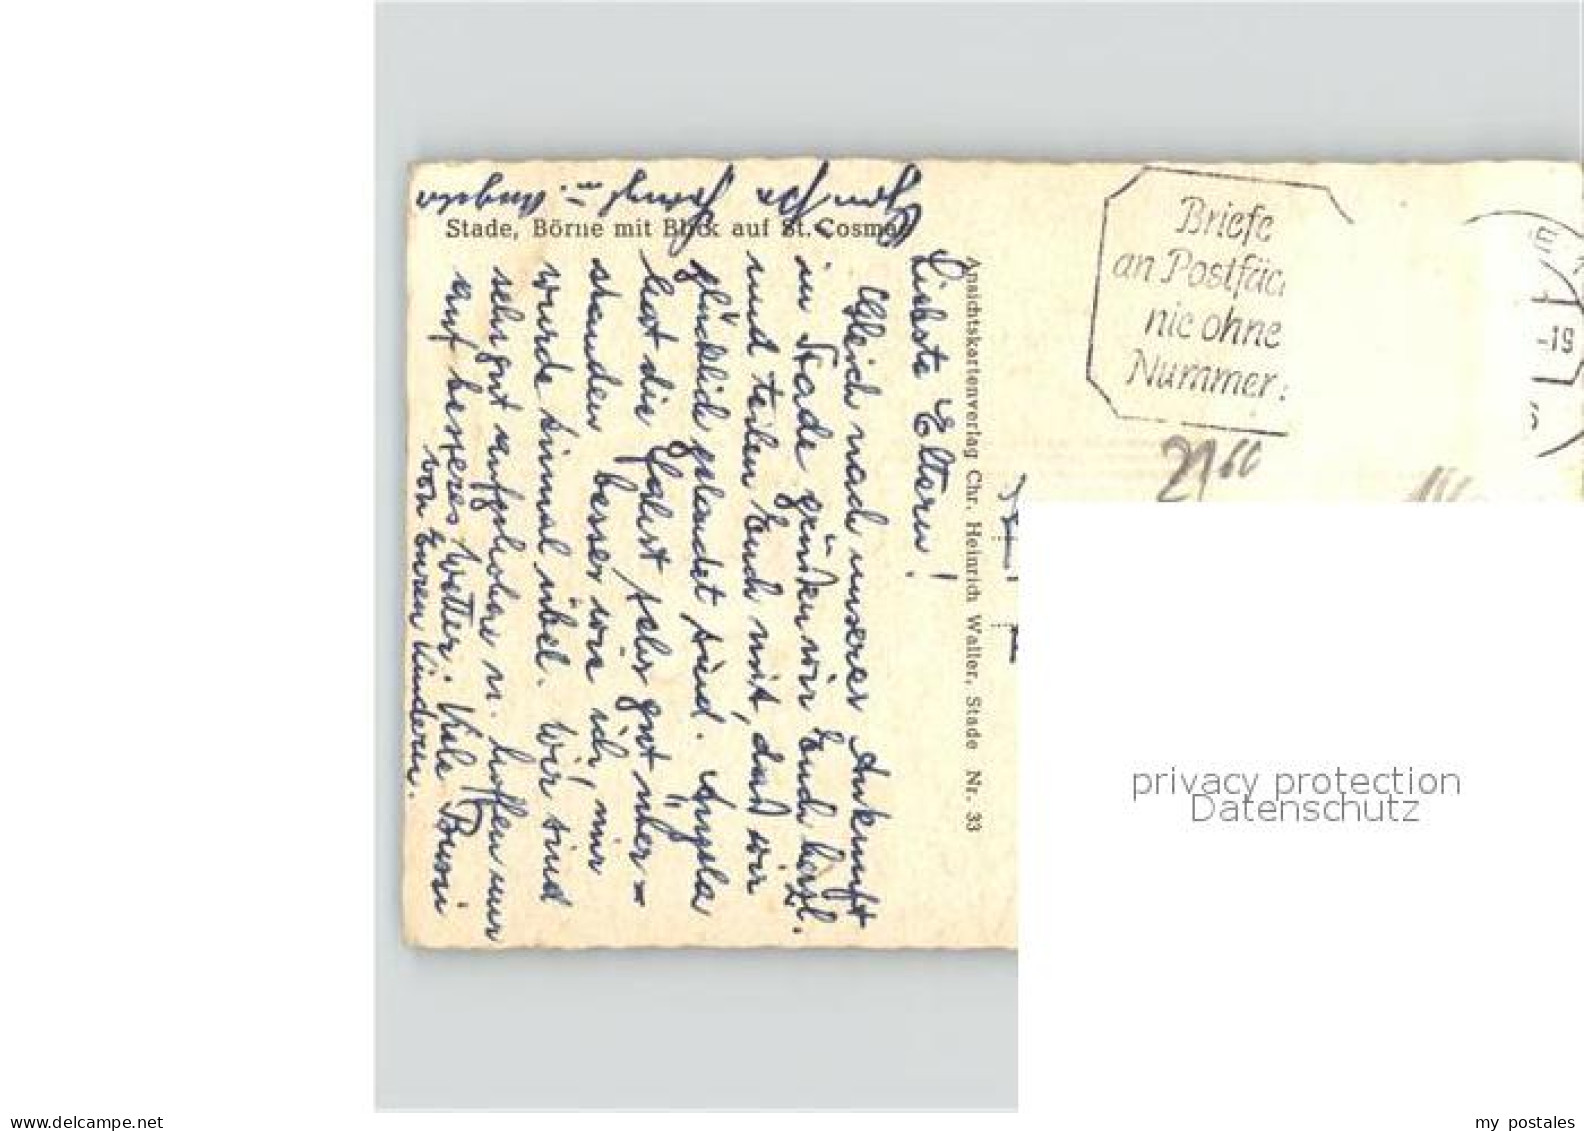 Stade, Börne mit Blick auf St. Cosmae
Liebste Eltern!
Gleich nach unserer Ankunft
in Stade grüßen wir Euch herzl.
und teilen Euch mit, daß wir
glücklich gelandet sind. Angela
hat die Fahrt sehr gut über-
standen besser wie ich, mir
wurde einmal übel. Wir sind
sehr gut aufgehoben u. hoffen nur
auf besseres Wetter. Viele Bussi
von Euren Kindern.
u. Angela
Ansichtskartenverlag Chr. Heinrich Waller, Stade Nr. 33
Briefe
an Postfäc
nie ohne
Nummer
-19
privacy protection
Datenschutz
delcampe.net
tagomago53
my postales